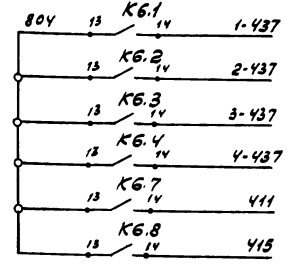 К6.1
804 13 14 1-437
К6.2
13 14 2-437
К6.3
13 14 3-437
К6.4
13 14 4-437
К6.7
13 14 411
К6.8
13 14 415